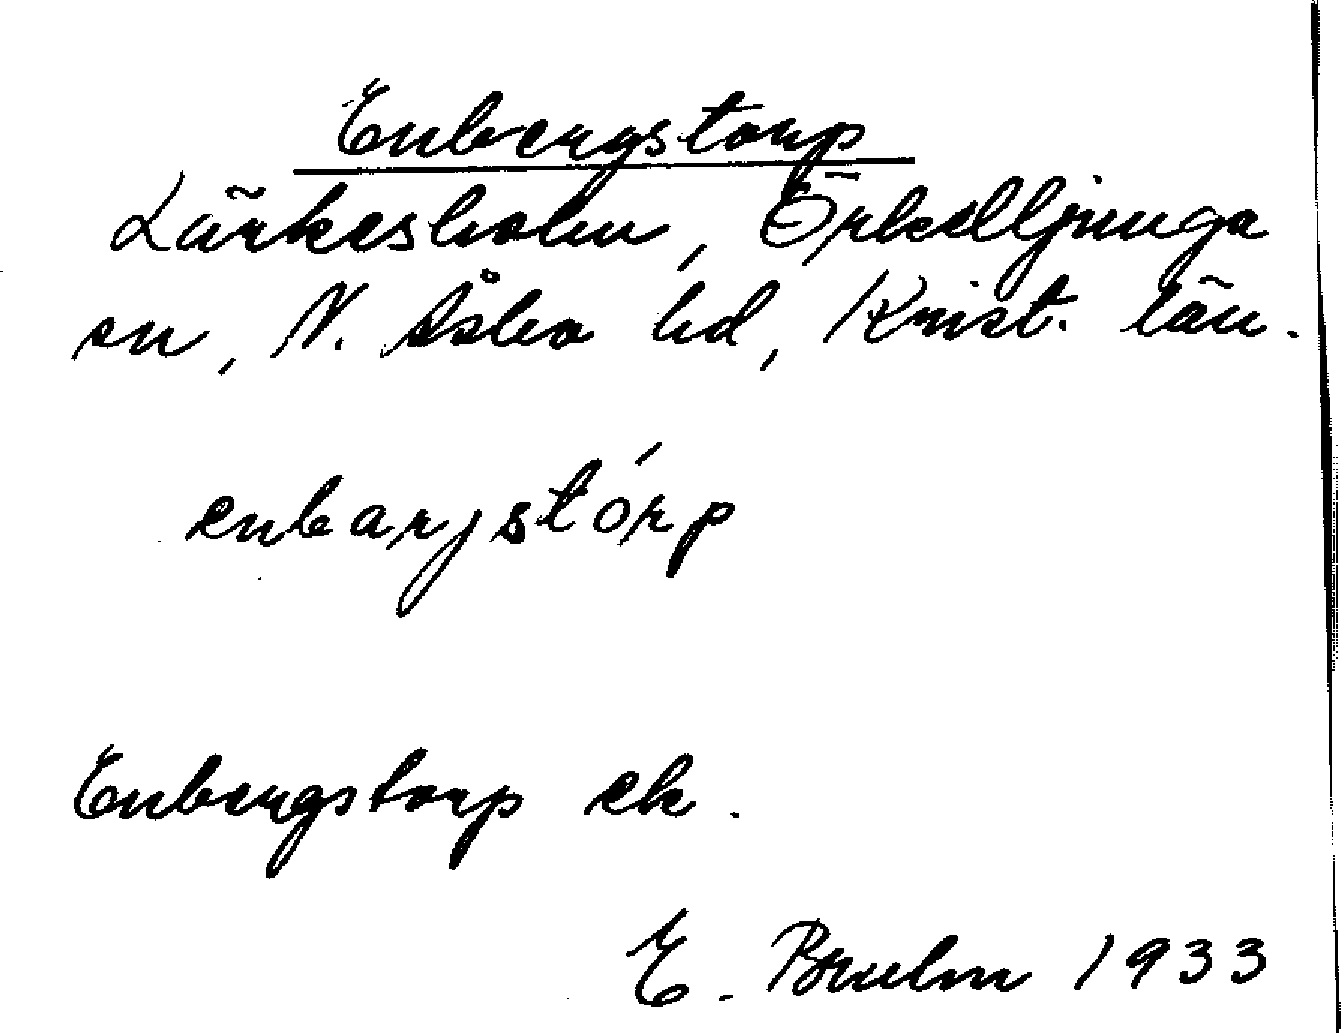 Enbergstorp
Lärkesholm, Örkelljunga
sn, N. Åsbo hd, Krist. län.
enbarjstórp
Enbergstorp ek.
E. Bruhn 1933